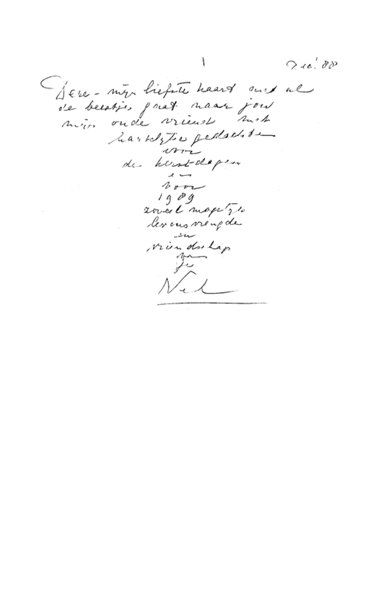 Dec! 88
Deze - mijn liefste kaart met al
de beestjes gaat naar jou
mijn oude vriend met
hartelijke gedachten
voor
de kerstdagen
en
voor
1989
zoveel mogelijk
levensvreugde
en
vriendschap
van
je
Nel